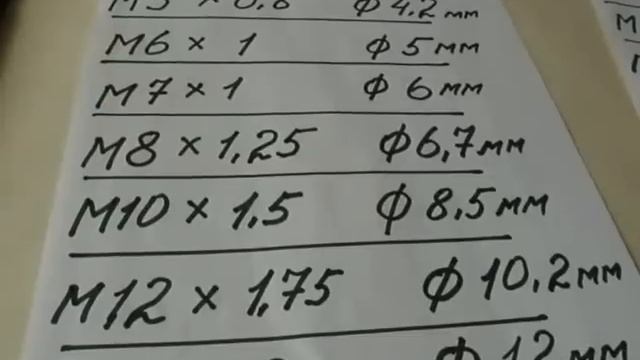 M5 × 0,8 Ф 4,2 мм
М6 × 1 Ф 5 мм
М7 × 1 Ф 6 мм
М8 × 1,25 Ф 6,7 мм
М10 × 1,5 Ф 8,5 мм
М12 × 1,75 Ф 10,2 мм
Ф 12 мм